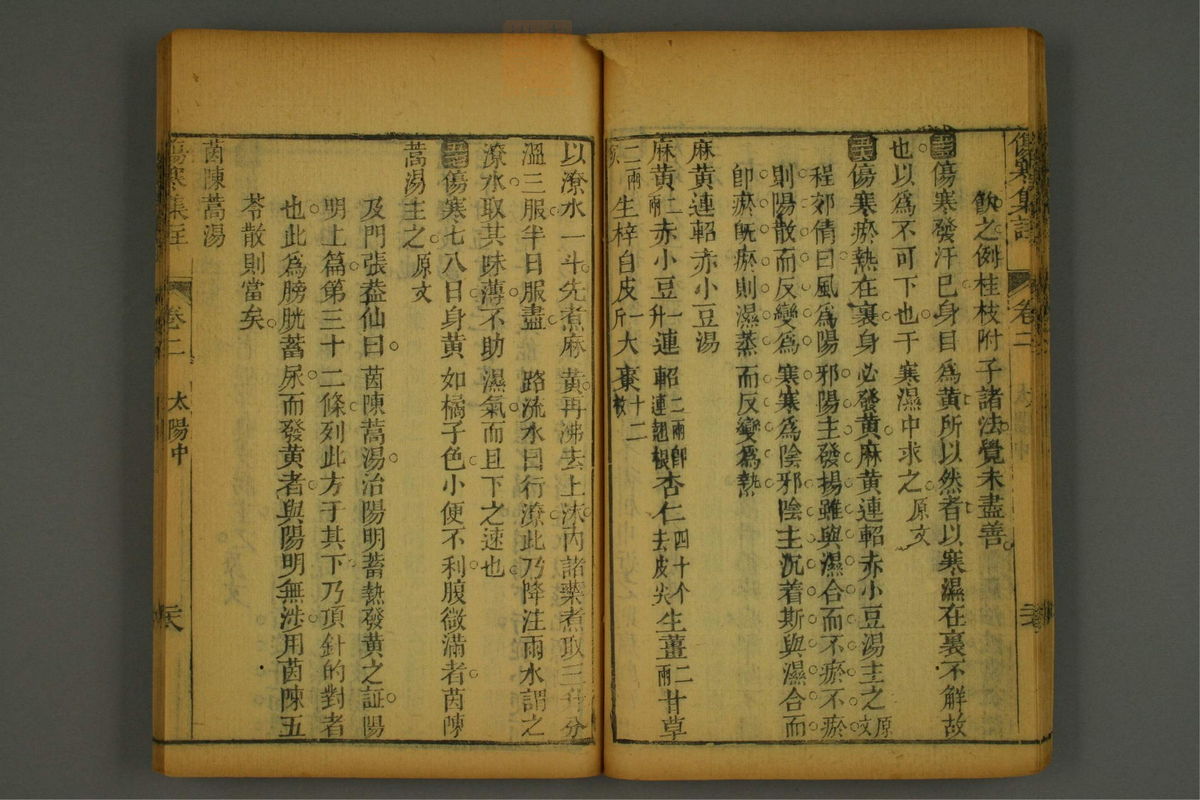 傷寒集註 卷二 太陽中
飲之例桂枝附子諸法覺未盡善
傷寒發汗已身目爲黃所以然者以寒濕在裏不解故
也以爲不可下也于寒濕中求之原文
傷寒瘀熱在裏身必發黃麻黃連軺赤小豆湯主之原文
程郊倩曰風爲陽邪陽主發揚雖與濕合而不瘀不瘀
則陽散而反變爲寒寒爲陰邪陰主沉着斯與濕合而
卽瘀旣瘀則濕蒸而反變爲熱
麻黃連軺赤小豆湯
麻黃二兩赤小豆一升連軺二兩卽連翹根杏仁四十个去皮尖生薑二兩甘草
二兩生梓白皮一斤大棗十二枚
以潦水一斗先煮麻黃再沸去上沫內諸藥煮取三升分
溫三服半日服盡 路流水曰行潦此乃降注雨水謂之
潦水取其味薄不助濕氣而且下之速也
傷寒七八日身黃如橘子色小便不利腹微滿者茵陳
蒿湯主之原文
及門張蓋仙曰茵陳蒿湯治陽明蓄熱發黃之証陽
明上篇第三十二條列此方于其下乃頂針的對者
也此爲膀胱蓄尿而發黃者與陽明無涉用茵陳五
苓散則當矣
茵陳蒿湯
傷寒集註 卷二 太陽中